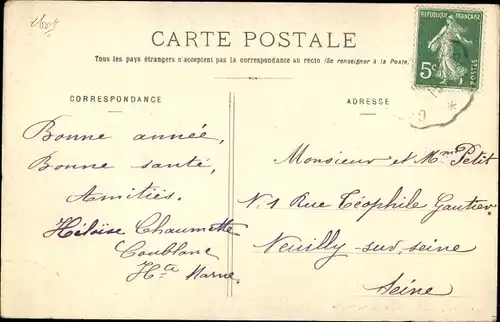 CARTE POSTALE
Tous les pays étrangers n'acceptent pas la correspondance au recto (Se renseigner à la Poste)
RÉPUBLIQUE FRANÇAISE
5c
POSTES
CORRESPONDANCE
ADRESSE
Bonne année,
Bonne santé,
Amitiés.
Héloïse Chaumette
Coublanc
Hte Marne.
Monsieur et Mme Petit
N. 1 Rue Téophile Gautier
Neuilly-sur-seine
Seine